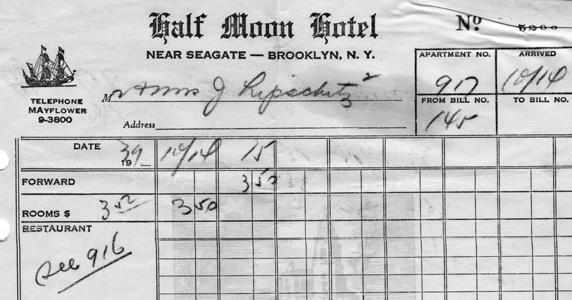 Half Moon Hotel
No 5200
NEAR SEAGATE — BROOKLYN, N. Y.
APARTMENT NO. ARRIVED
917 10/14
TELEPHONE
MAYFLOWER
9-3800
Mr & Mrs J Lipschitz 2
FROM BILL NO. TO BILL NO.
145
Address
DATE 1939 10/14 15
FORWARD 350
ROOMS $ 350 350
RESTAURANT
see 916